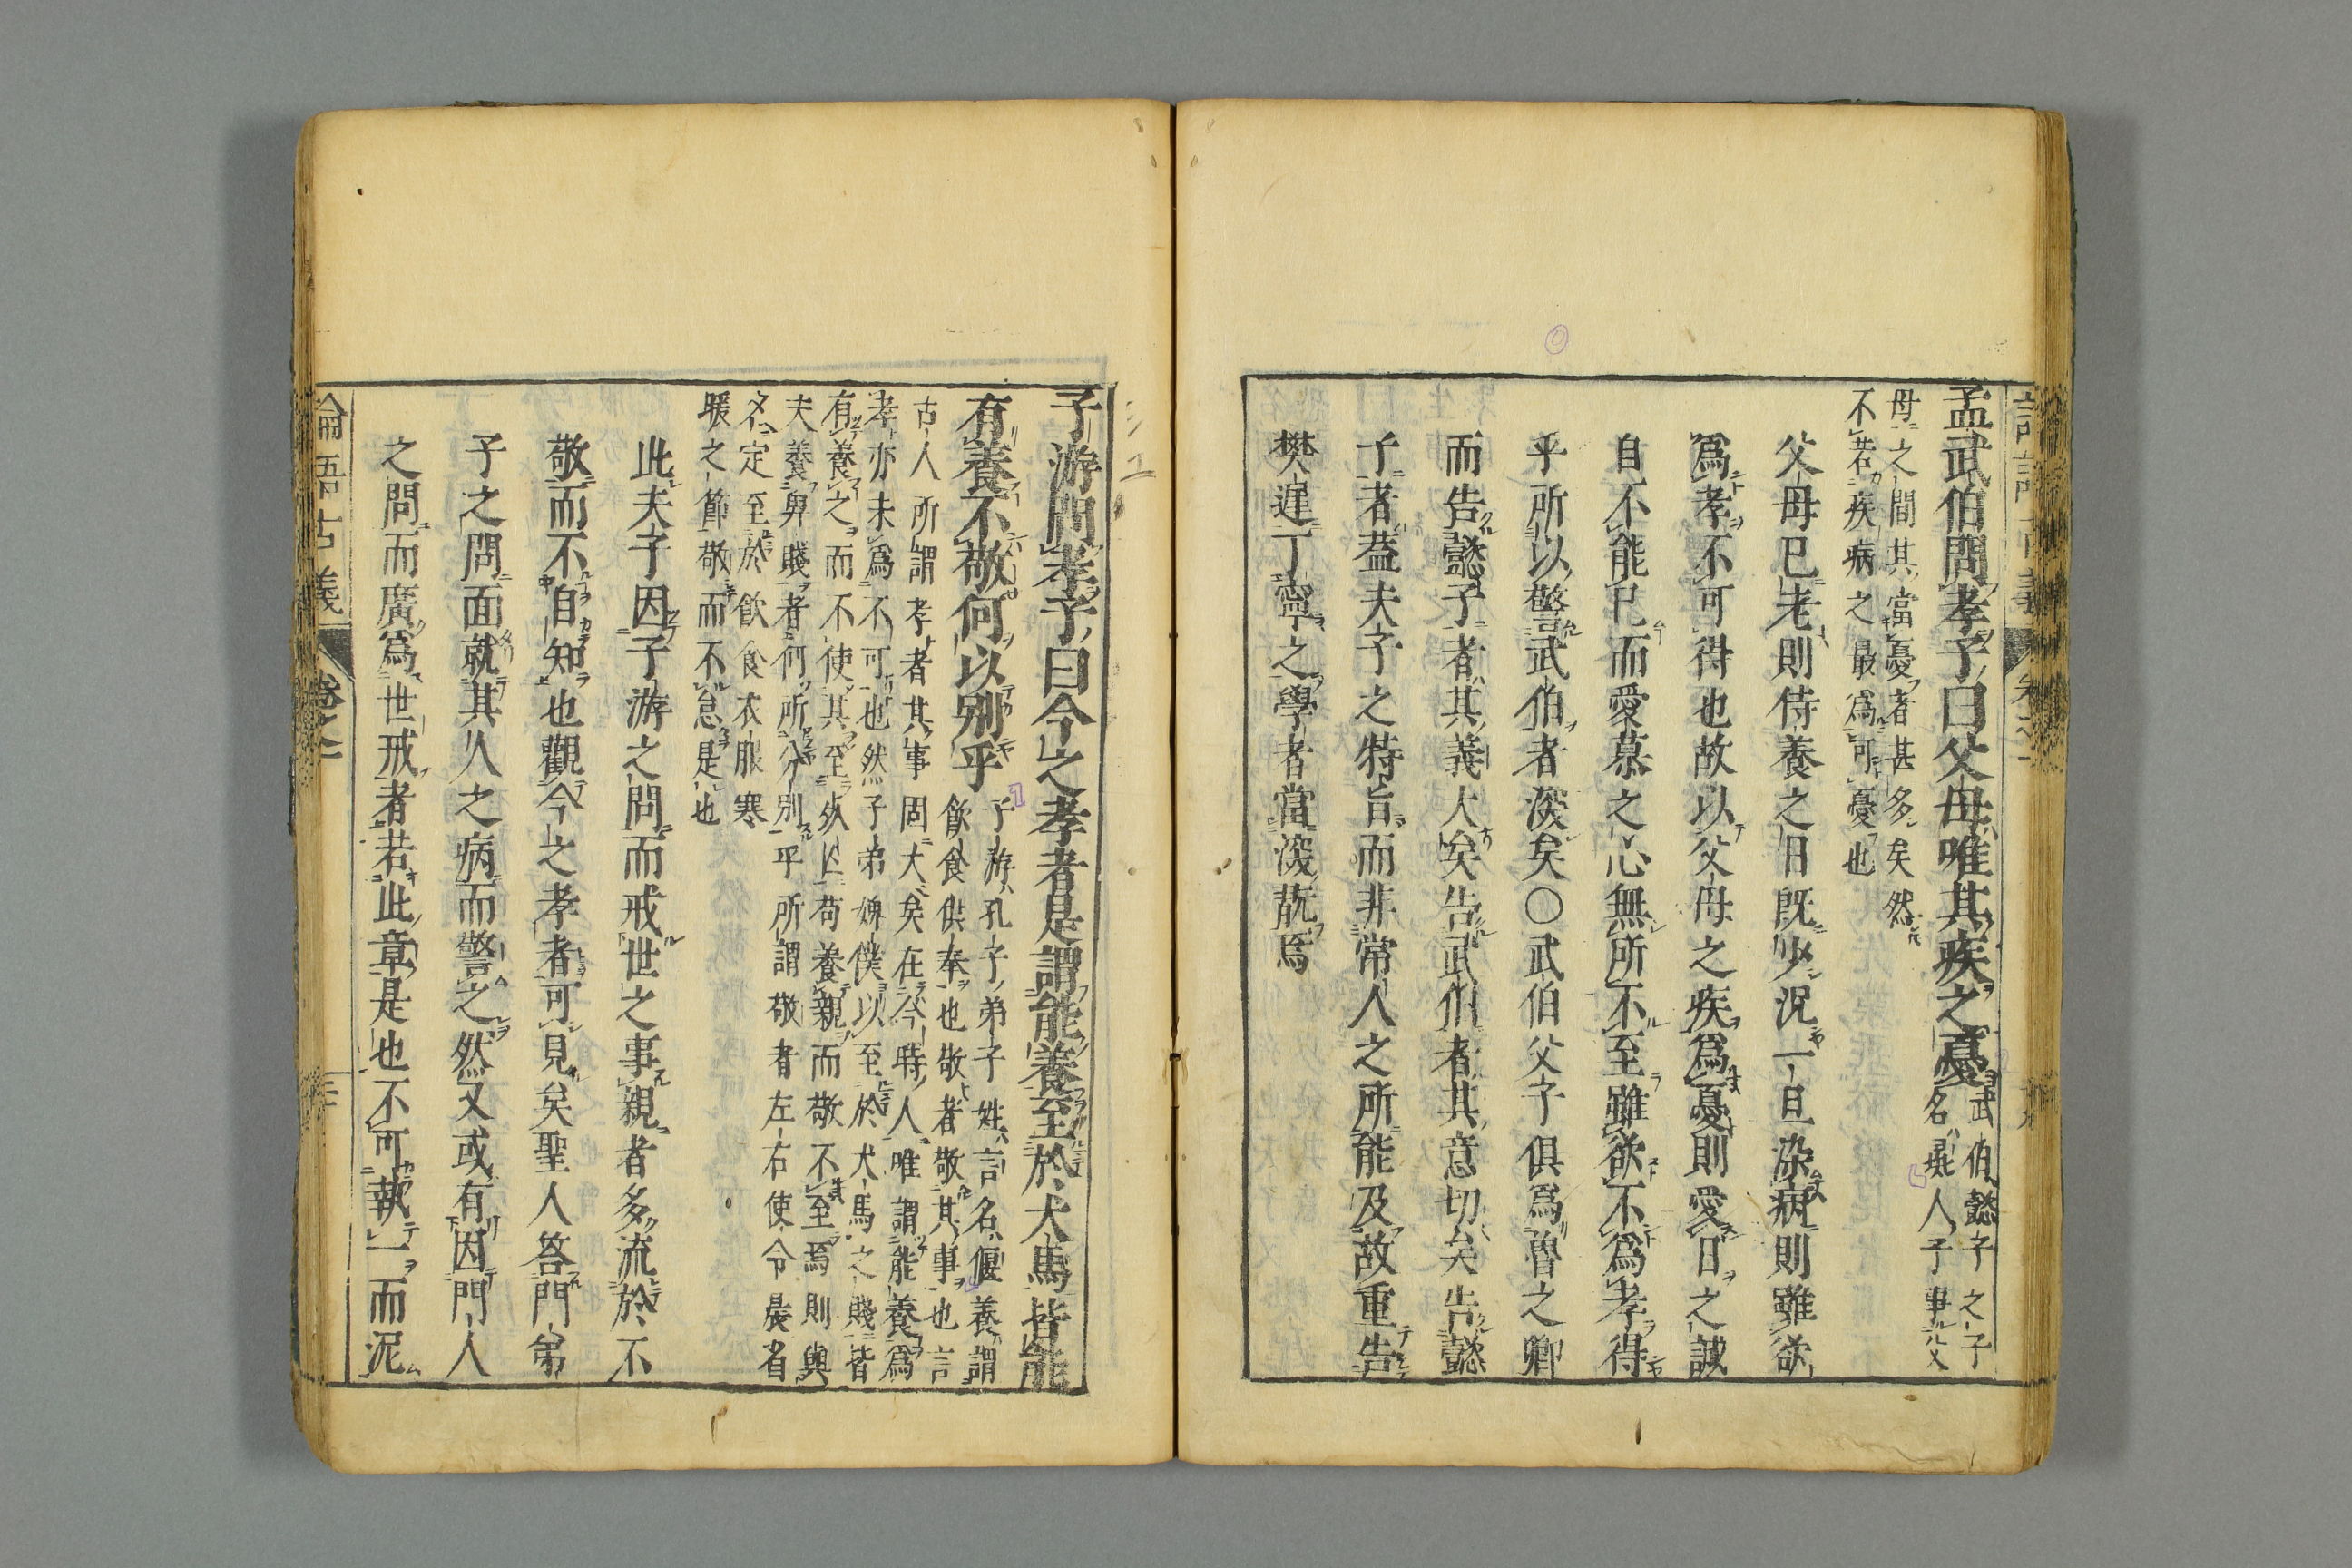 孟武伯問孝子曰父母唯其疾之憂
武伯懿子之子
名彘人子事父
母之間其當憂者甚多矣然
不若疾病之最爲可憂也
父母已老則侍養之日既少況一旦染病則雖欲
爲孝不可得也故以父母之疾爲憂則愛日之誠
自不能已而愛慕之心無所不至雖欲不爲孝得
乎所以警武伯者深矣〇武伯父子俱爲魯之卿
而告懿子者其義大矣告武伯者其意切矣告懿
子者蓋夫子之特旨而非常人之所能及故重告
樊遲丁寧之學者當深翫焉
子游問孝子曰今之孝者是謂能養至於犬馬皆能
有養不敬何以別乎
子游孔子弟子姓言名偃養謂
飲食供奉也敬者敬其事也言
古人所謂孝者其事固大矣在今時人唯謂能養爲
孝亦未爲不可也然子弟婢僕以至於犬馬之賤皆
有養之而不使其至死亡苟養親而敬不至焉則與
夫養卑賤者何所分別乎所謂敬者左右使令晨省
昏定至於飲食衣服寒
暖之節敬而不怠是也
此夫子因子游之問而戒世之事親者多流於不
敬而不自知也觀今之孝者可見矣聖人答門弟
子之問面就其人之病而警之然又或有因門人
之問而廣爲世戒者若此章是也不可執一而泥
論語古義
卷之一